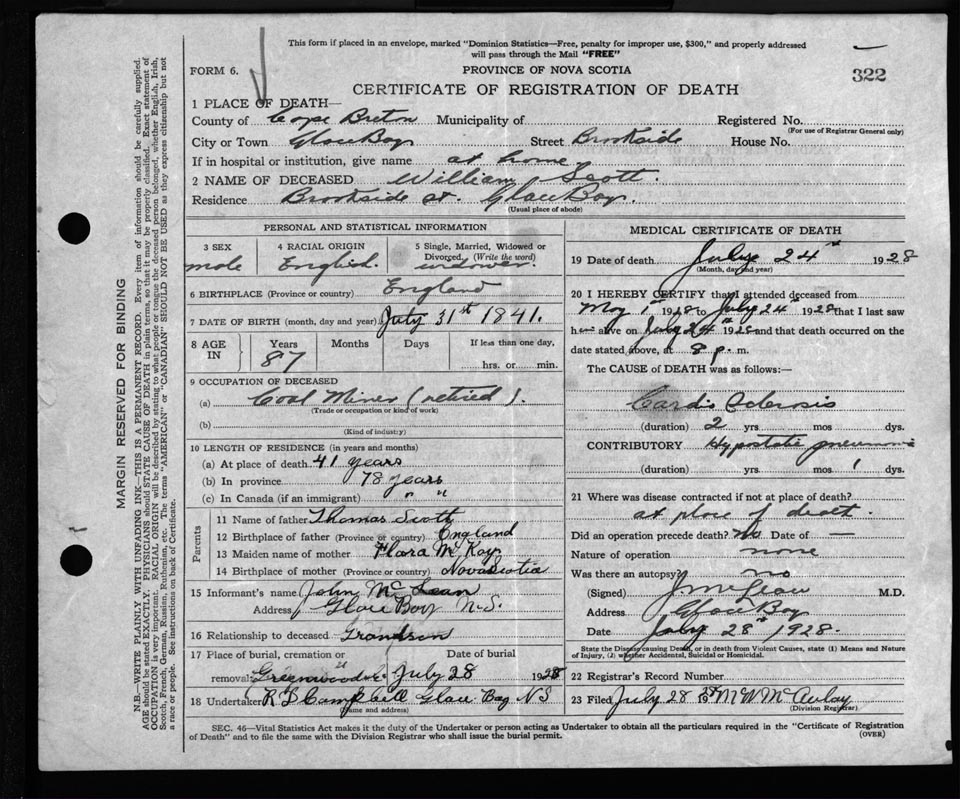 This form if placed in an envelope, marked "Dominion Statistics—Free, penalty for improper use, $300," and properly addressed
will pass through the Mail "FREE"
FORM 6.
PROVINCE OF NOVA SCOTIA
322
CERTIFICATE OF REGISTRATION OF DEATH
1 PLACE OF DEATH—
County of Cape Breton Municipality of Registered No.
(For use of Registrar General only)
City or Town Glace Bay Street Brookside House No.
If in hospital or institution, give name at home
2 NAME OF DECEASED William Scott.
Residence Brookside st. Glace Bay.
(Usual place of abode)
PERSONAL AND STATISTICAL INFORMATION
3 SEX
male
4 RACIAL ORIGIN
English.
5 Single, Married, Widowed or
Divorced. (Write the word)
widower.
6 BIRTHPLACE (Province or country) England
7 DATE OF BIRTH (month, day and year) July 31st 1841.
8 AGE IN
Years
87
Months
Days
If less than one day,
hrs. or min.
9 OCCUPATION OF DECEASED
(a) Coal Miner (retired).
(Trade or occupation or kind of work)
(b)
(Kind of industry)
10 LENGTH OF RESIDENCE (in years and months)
(a) At place of death 41 years
(b) In province 78 years
(c) In Canada (if an immigrant) " "
Parents
11 Name of father Thomas Scott
12 Birthplace of father (Province or country) England
13 Maiden name of mother Flora McKay
14 Birthplace of mother (Province or country) Nova Scotia
15 Informant's name John McLean
Address Glace Bay N.S.
16 Relationship to deceased Grandson
17 Place of burial, cremation or Date of burial
removal: Greenwood July 28 1928
18 Undertaker R S Campbell Glace Bay NS
(Name and address)
MEDICAL CERTIFICATE OF DEATH
19 Date of death July 24th 1928
(Month, day and year)
20 I HEREBY CERTIFY that I attended deceased from
May 1st 1928 to July 24th 1928 that I last saw
h alive on July 24th 1928 and that death occurred on
date stated above, at 8 p. m.
The CAUSE of DEATH was as follows:—
Cardio Sclerosis
(duration) 2 yrs mos dys.
CONTRIBUTORY Hypostatic pneumonia
(duration) yrs mos 1 dys.
21 Where was disease contracted if not at place of death?
at place of death.
Did an operation precede death? No Date of —
Nature of operation none
Was there an autopsy? no
(Signed) M.D.
Address Glace Bay
Date July 28th 1928.
State the Disease causing Death, or in death from Violent Causes, state (1) Means and Nature
of Injury, (2) whether Accidental, Suicidal or Homicidal.
22 Registrar's Record Number
23 Filed July 28 McAulay
(Division Registrar)
SEC. 46—Vital Statistics Act makes it the duty of the Undertaker or person acting as Undertaker to obtain all the particulars required in the "Certificate of Registration
of Death" and to file the same with the Division Registrar who shall issue the burial permit.
(OVER)
MARGIN RESERVED FOR BINDING
N.B.—WRITE PLAINLY WITH UNFADING INK—THIS IS A PERMANENT RECORD. Every item of information should be carefully supplied.
AGE should be stated EXACTLY. PHYSICIANS should STATE CAUSE OF DEATH in plain terms, so that it may be properly classified. Exact statement of
OCCUPATION is very important. RACIAL ORIGIN will be described by stating to what people or tongue the deceased person belonged, whether English, Irish,
Scotch, French, German, Russian, Ruthenian, etc. The terms "AMERICAN" or "CANADIAN" SHOULD NOT BE USED as they express citizenship but not
a race or people. See instructions on back of Certificate.